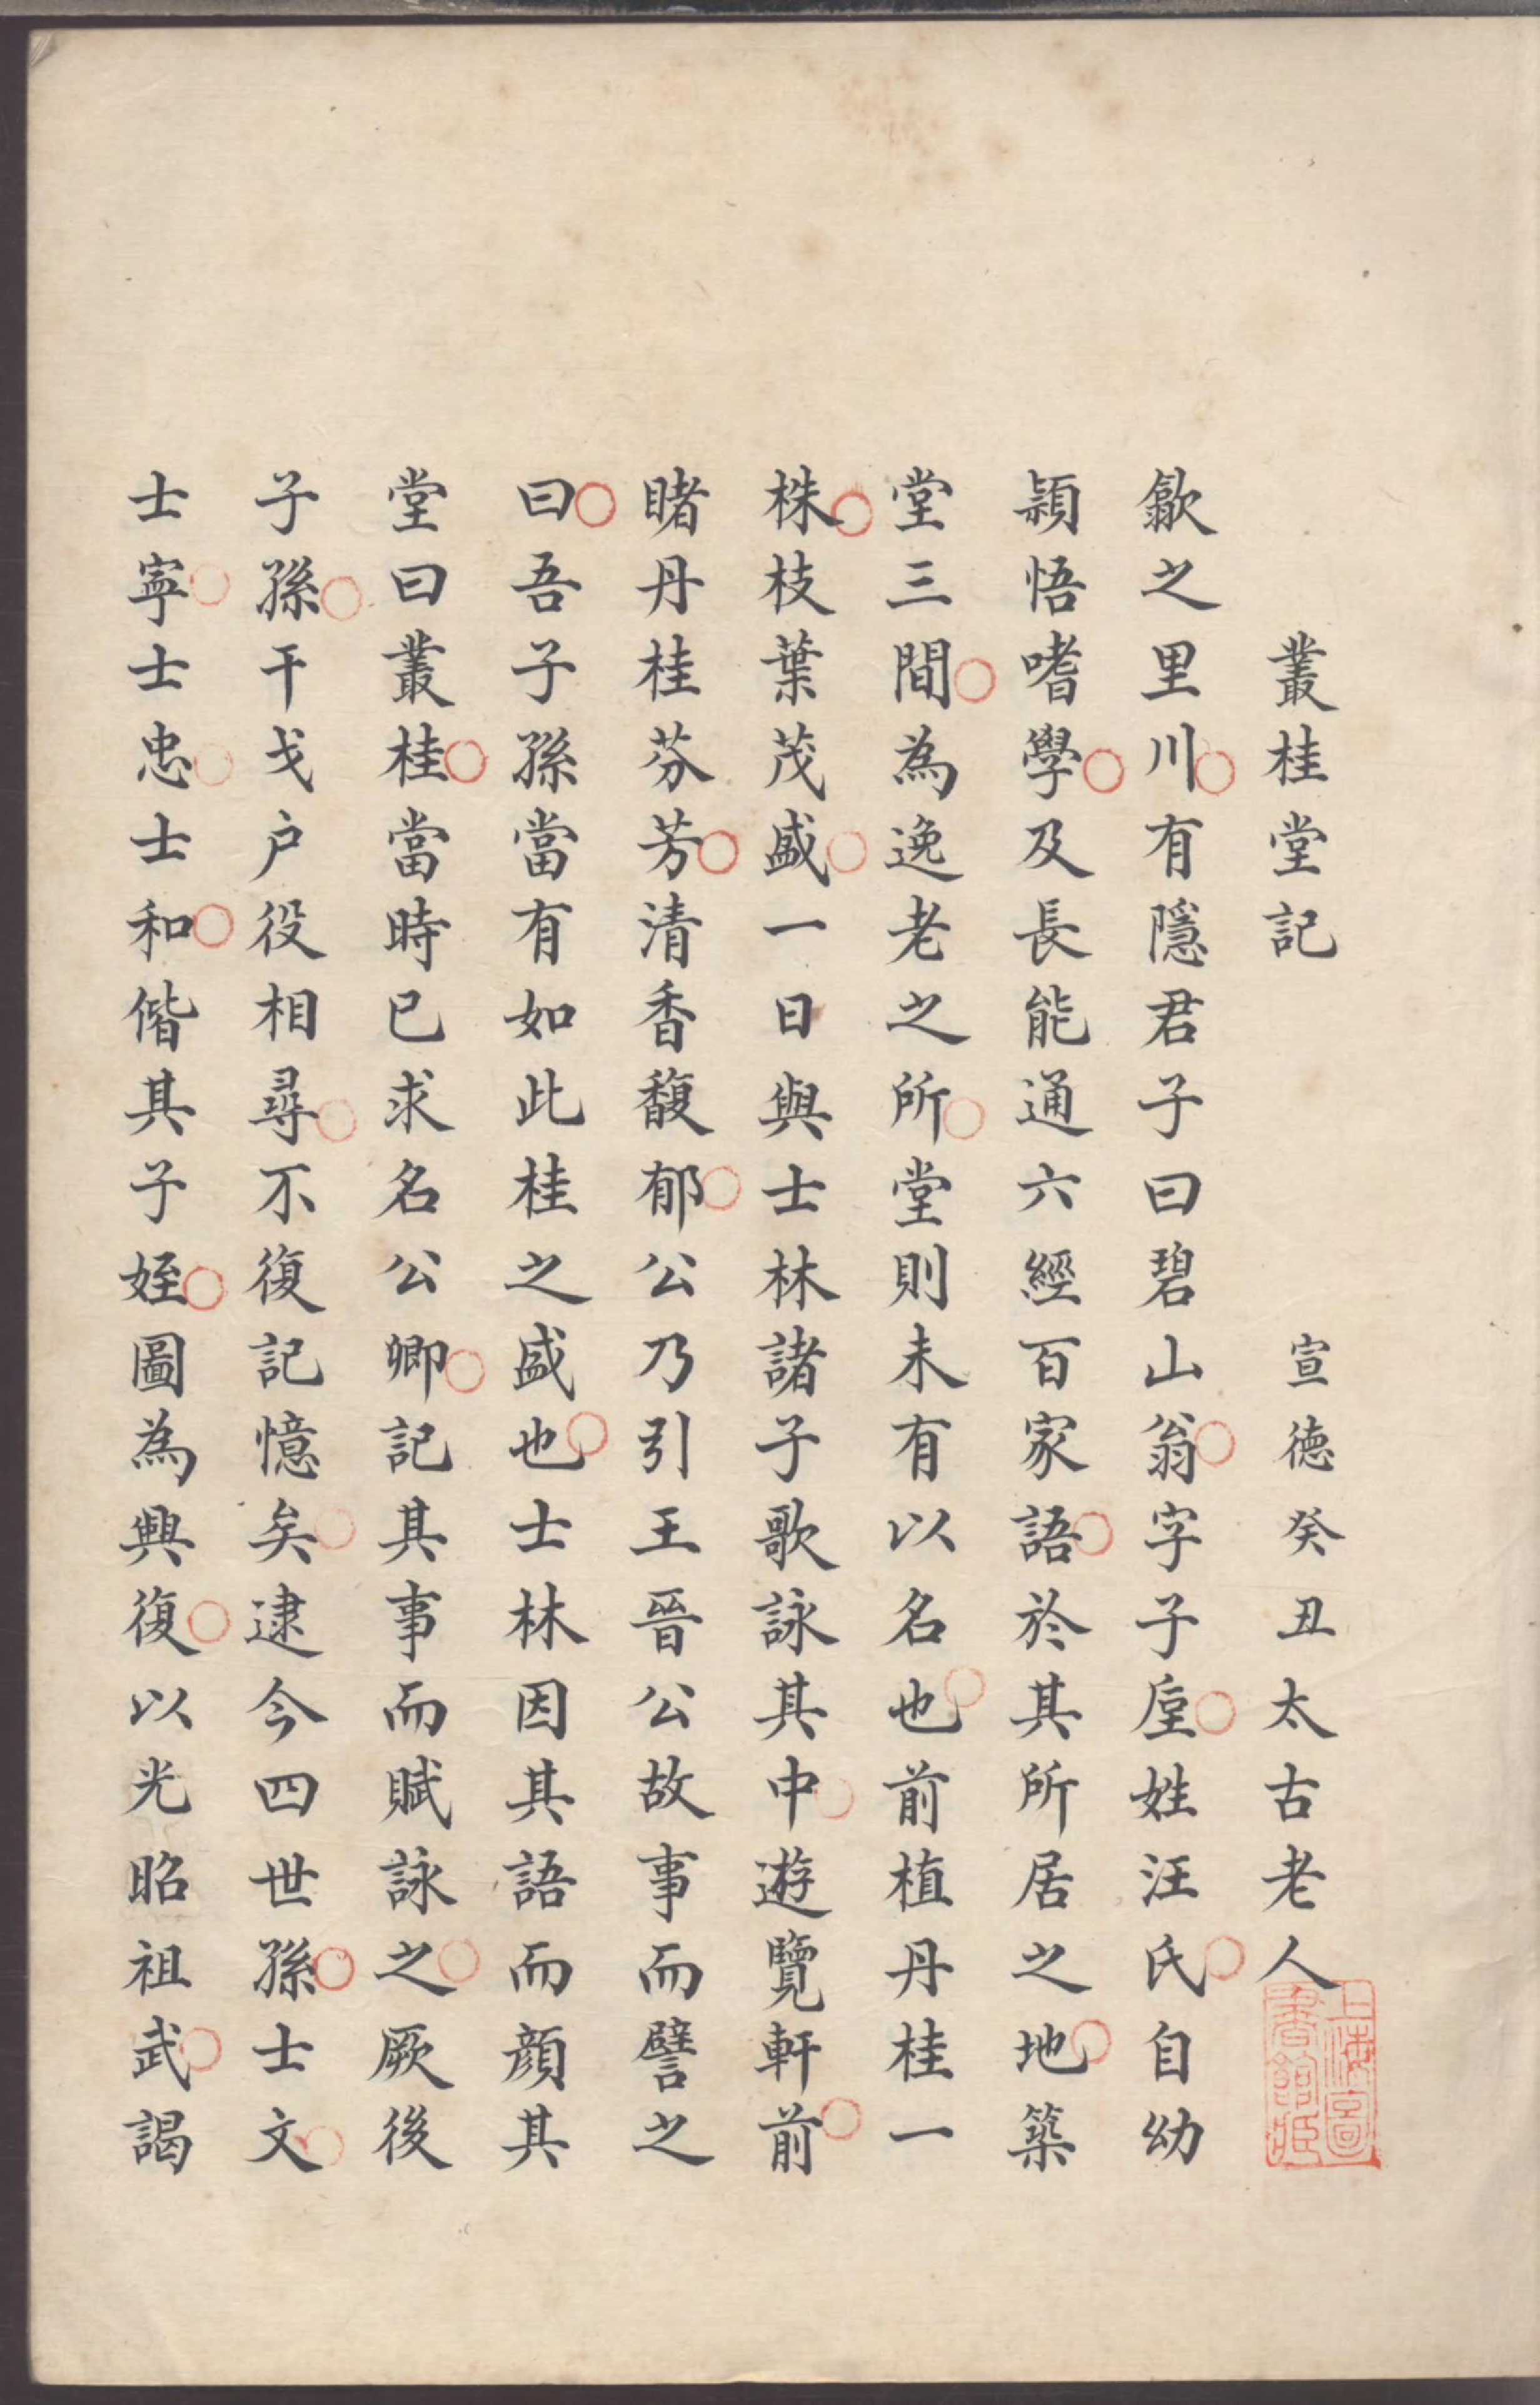 叢桂堂記　宣德癸丑太古老人
歙之里川有隱君子曰碧山翁字子垕姓汪氏自幼
穎悟嗜學及長能通六經百家語於其所居之地築
堂三間為逸老之所堂則未有以名也前植丹桂一
株枝葉茂盛一日與士林諸子歌詠其中遊覽軒前
睹丹桂芬芳清香馥郁公乃引王晉公故事而譬之
曰吾子孫當有如此桂之盛也士林因其語而顔其
堂曰叢桂當時已求名公卿記其事而賦詠之厥後
子孫干戈户役相尋不復記憶矣逮今四世孫士文
士寧士忠士和偕其子姪圖為興復以光昭祖武謁
上海圖
書館藏